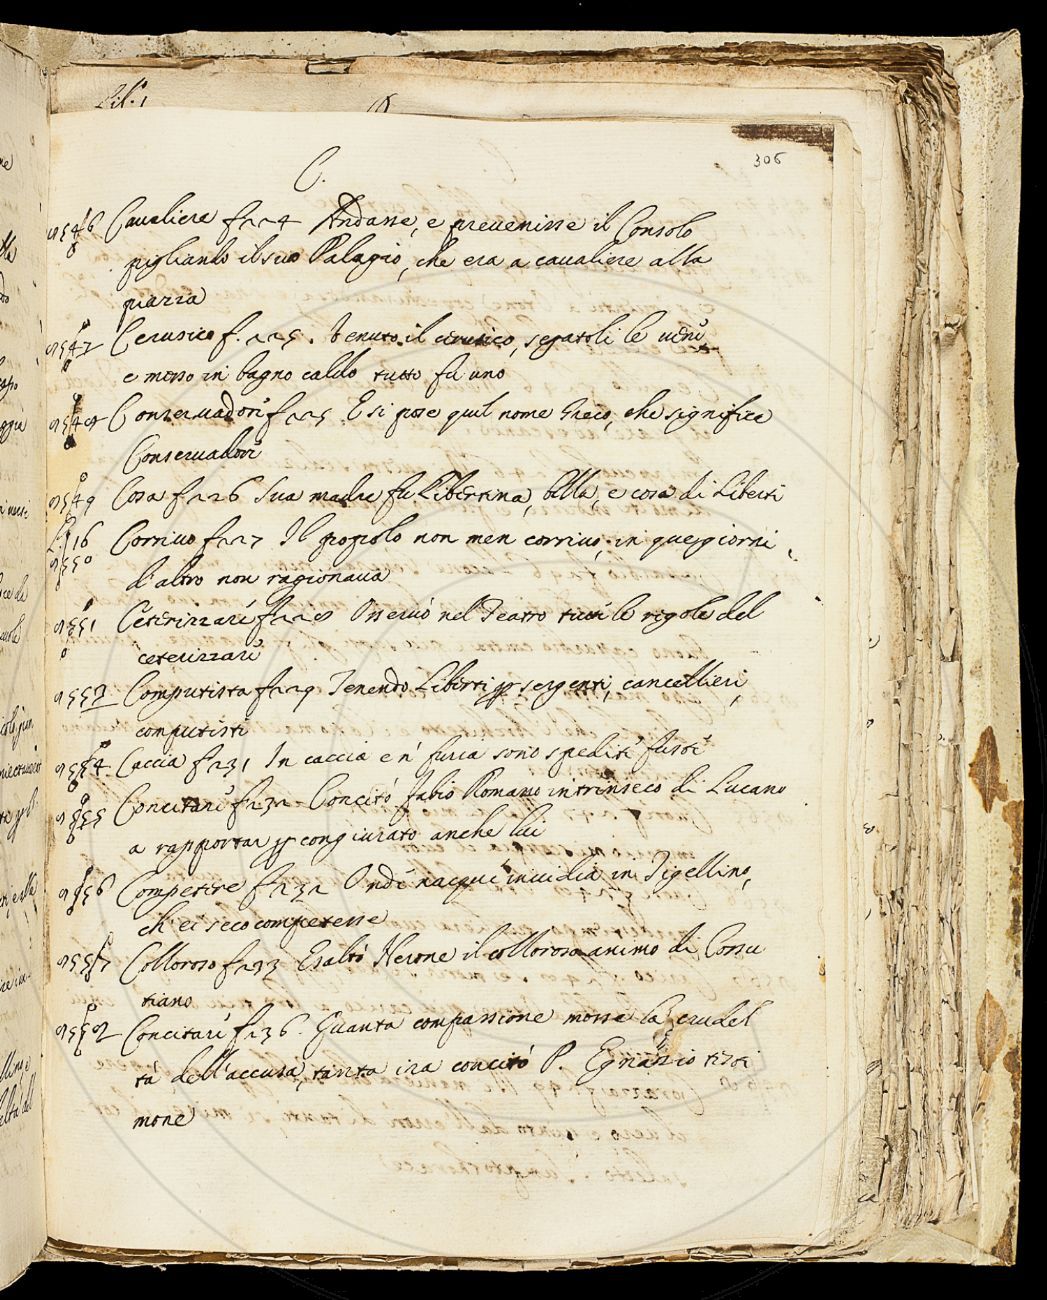 Lib. 1
306
C.
9546 Cavaliera f 224 Andasse, e prevenisse il Consolo
pigliando il suo Palagio, che era a cavaliere alla
piazza
9547 Cerusico f. 225. Venuto il cerusico, segatoli le veni
e messo in bagno caldo tutto fu uno
9548 Conservadori f 225 E si pose quel nome Greco, che significa
Conservadori
9549 Cosa f 226 Sua madre fu Libertina, bella, e cosa di Liberti
16 Corrivo f 227 Il popolo non men corrivo, in que giorni
9550 d'altro non ragionava
9551 Ceterizzare f 228 Osservò nel Teatro tutte le regole del
ceterizzare
9552 Computista f 229 Tenendo Liberti p sergenti, cancellieri,
computisti
9554 Caccia f 231 In caccia e n furia sono spediti
9555 Concitare f 232 Concitò Fabio Romano intrinseco di Lucano
a rapportar p congiurato anche lui
9556 Competere f 232 Onde nacque invidia in Tigellino,
ch'ei seco competesse
9557 Colloroso f 233 Esaltò Nerone il colloroso animo di Cossu
tiano
9558 Concitare f 236. Quanta compassione mosse la crudel
tà dell'accusa, tanta ira concitò P. Egnazio testi
mone